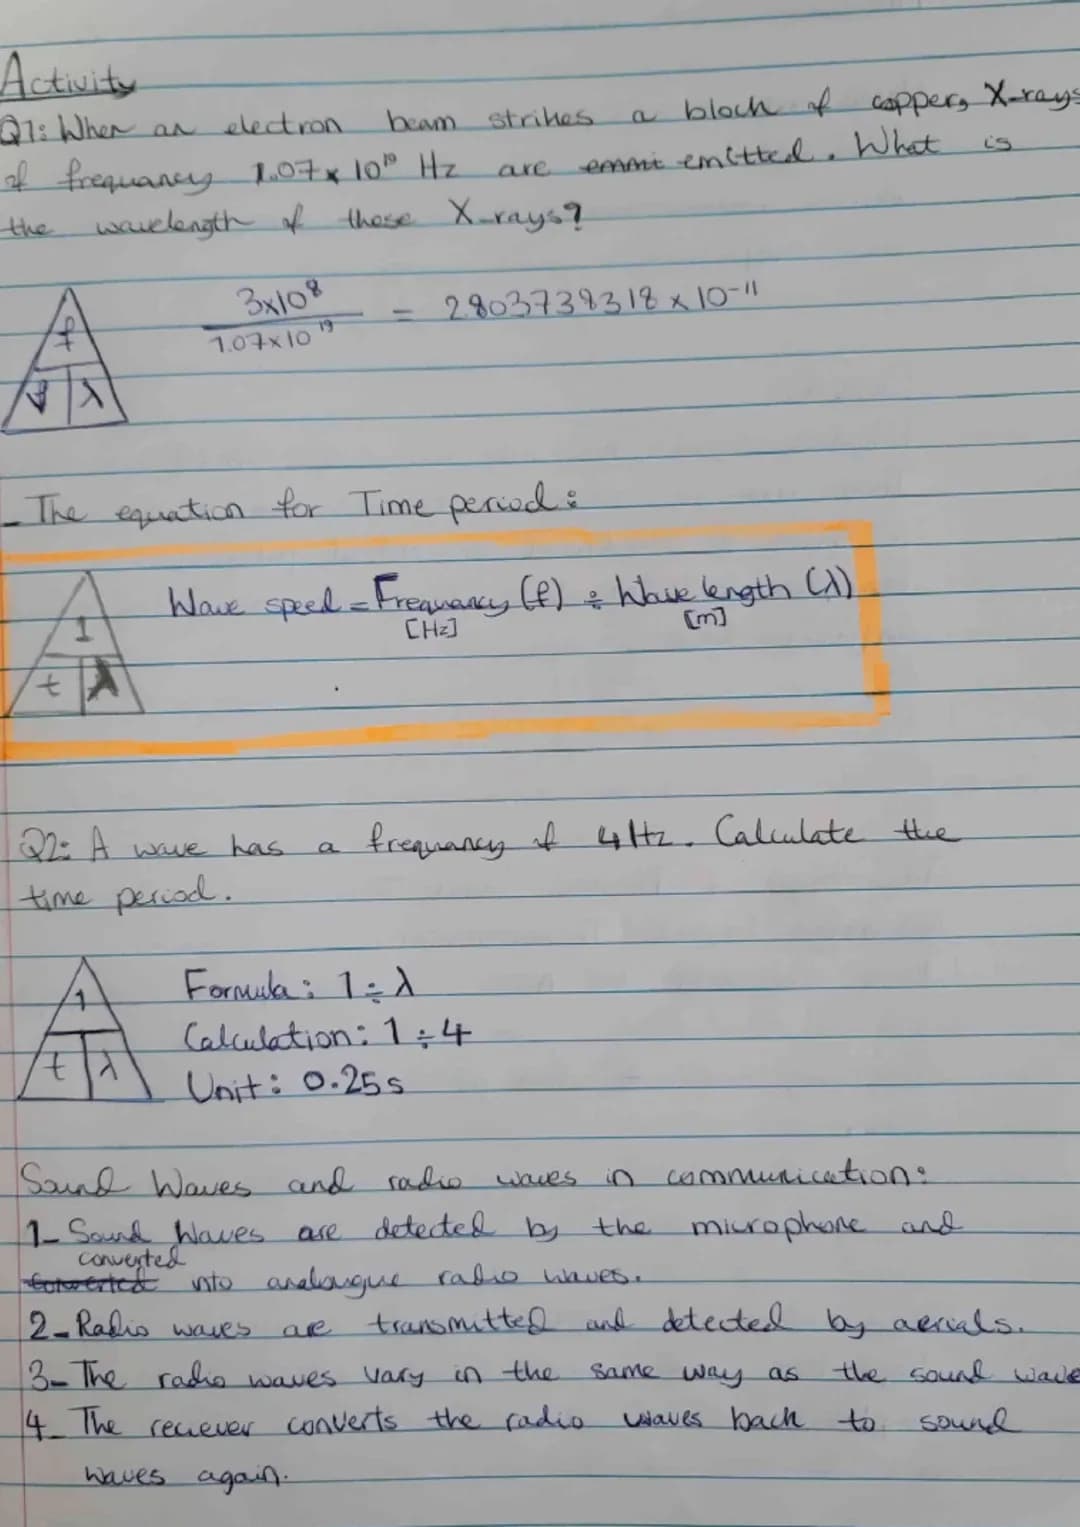 Activity
Q1: When an electron beam strikes a block of copper, X-rays
of frequancy 1.07 x 10¹⁹ Hz are emmi emitted. What is
the wavelength of these X-rays?
3x10⁸ = 2.803738318 x 10⁻¹¹
1.07x10¹⁹
f
v λ
- The equation for Time period:
Wave speed = Frequancy (f) ÷ Wave length (λ)
[Hz] [m]
1
t λ
Q2: A wave has a frequancy of 4Hz. Calculate the
time period.
Formula: 1÷λ
1
Calculation: 1÷4
t λ
Unit: 0.25s
Sound Waves and radio waves in communication:
1- Sound Waves are detected by the microphone and
converted
Converted into analougue radio waves.
2- Radio waves are transmitted and detected by aerials.
3- The radio waves vary in the same way as the sound wave
4- The reciever converts the radio waves back to sound
waves again.